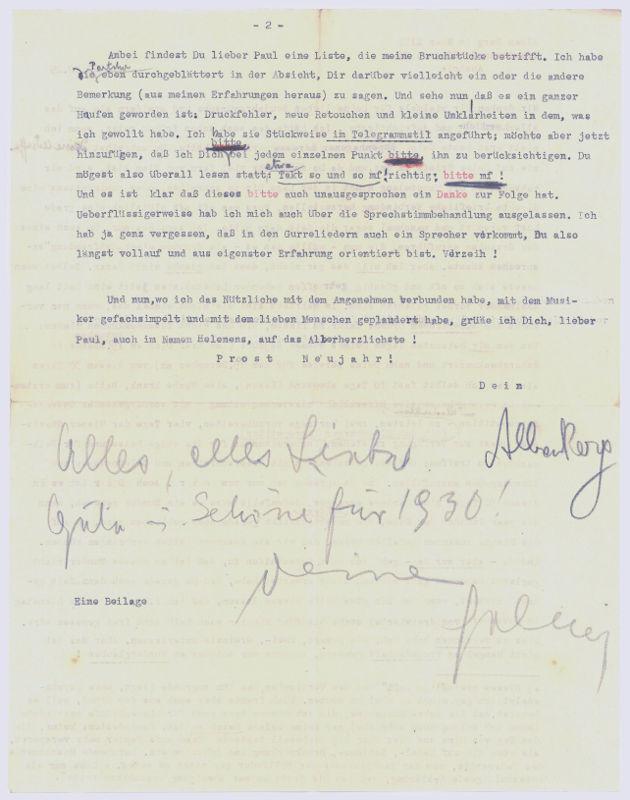 - 2 -
Anbei findest Du lieber Paul eine Liste, die meine Bruchstücke betrifft. Ich habe
Partitur
die eben durchgeblättert in der Absicht, Dir darüber vielleicht ein oder die andere
Bemerkung (aus meinen Erfahrungen heraus) zu sagen. Und sehe nun daß es ein ganzer
Haufen geworden ist: Druckfehler, neue Retouchen und kleine Unklarheiten in dem, was
ich gewollt habe. Ich habe sie Stückweise im Telegrammstil angeführt; möchte aber jetzt
bitte
hinzufügen, daß ich Dich bei jedem einzelnen Punkt bitte, ihn zu berücksichtigen. Du
etwa
mögest also überall lesen statt: Takt so und so mf! richtig: bitte mf !
Und es ist klar daß dieses bitte auch unausgesprochen ein Danke zur Folge hat.
Ueberflüssigerweise hab ich mich auch über die Sprechstimmbehandlung ausgelassen. Ich
hab ja ganz vergessen, daß in den Gurreliedern auch ein Sprecher vorkommt, Du also
längst vollauf und aus eigenster Erfahrung orientiert bist. Verzeih !
Und nun,wo ich das Nützliche mit dem Angenehmen verbunden habe, mit dem Musi-
ker gefachsimpelt und mit dem lieben Menschen geplaudert habe, grüße ich Dich, lieber
Paul, auch im Namen Helenens, auf das Allerherzlichste !
Prost Neujahr!
Dein
Alban Berg
Alles, alles Liebe
Gute u. Schöne für 1930!
Deine
Helene
Eine Beilage